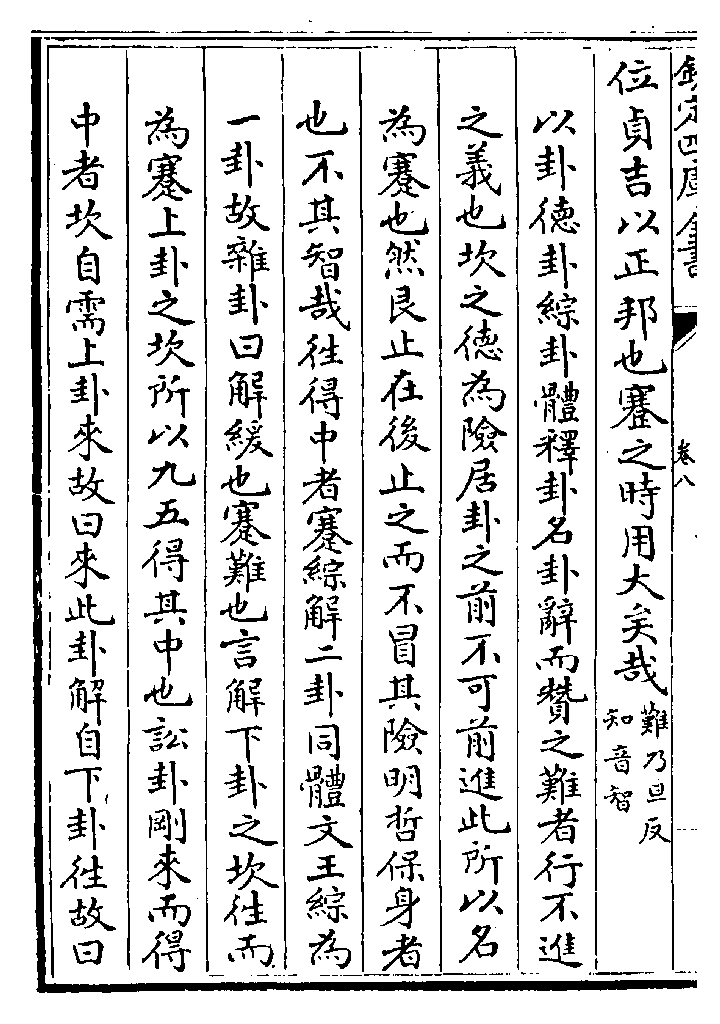 欽定四庫全書
卷八
位貞吉以正邦也蹇之時用大矣哉難乃旦反
知音智
以卦德卦綜卦體釋卦名卦辭而贊之難者行不進
之義也坎之德為險居卦之前不可前進此所以名
為蹇也然艮止在後止之而不冒其險明哲保身者
也不其智哉徃得中者蹇綜解二卦同體文王綜為
一卦故雜卦曰解緩也蹇難也言解下卦之坎徃而
為蹇上卦之坎所以九五得其中也訟卦剛來而得
中者坎自需上卦來故曰來此卦解自下卦徃故曰